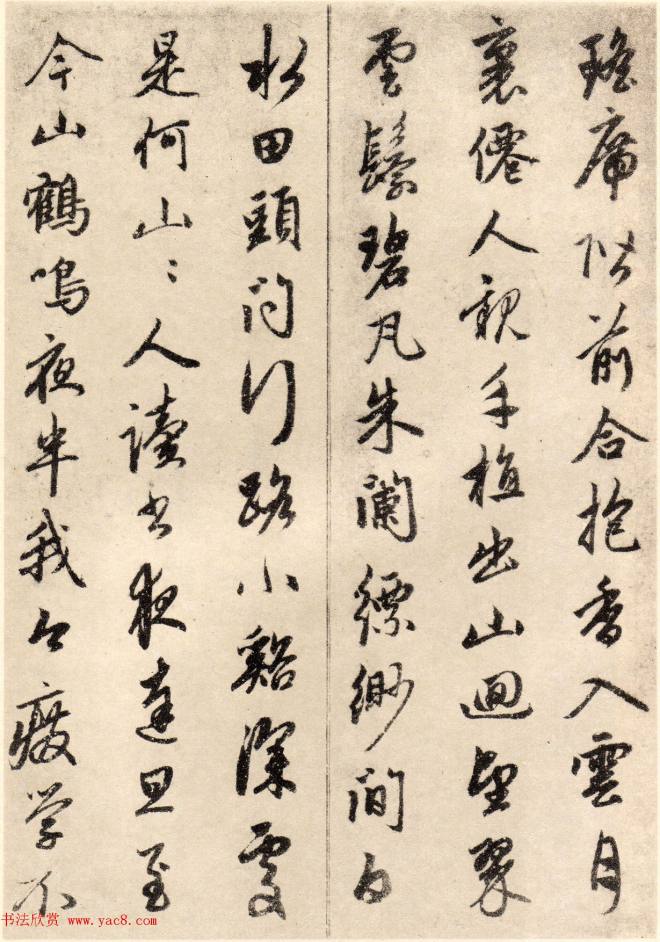 瑤席階前合抱香入雲月
裏僊人親手植出山迴望翠
雲鬟碧瓦朱闌縹緲間白
水田頭問行路小谿深處
是何山〻人讀書夜達旦至
今山鶴鳴夜半我今廢学不
书法欣赏 www.yac8.com